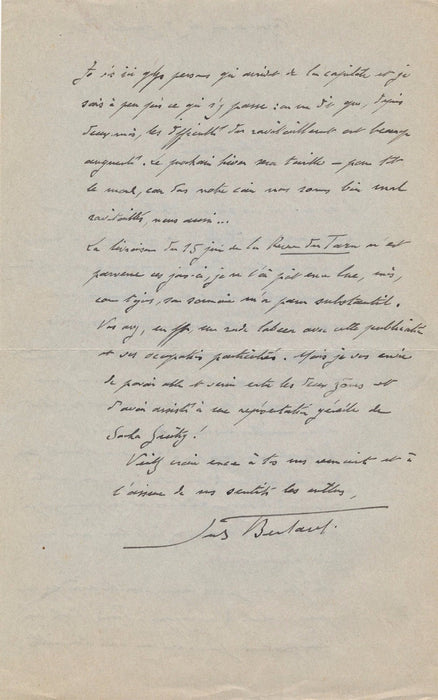 Je vis ici qlqs persons qui arrivent de la capitale et je
sais à peu près ce qui s'y passe : on me dit que, depuis
deux mois, les difficultés du ravitaillement ont beaucoup
augmenté. Le prochain hiver sera terrible — pour tout
le monde, car dans notre coin nous sommes bien mal
ravitaillés, nous aussi...
La livraison du 15 juin de la Revue du Tarn m'est
parvenue ces jours-ci, je ne l'ai pas encore lue, mais,
comme toujours, son sommaire m'a paru substantiel.
Vous avez, en effet, un rude labeur avec cette publication
et vos occupations particulières. Mais je vous envie
de pouvoir aller et venir entre les deux zônes et
d'avoir assisté à une représentation générale de
Sacha Guitry !
Veuillez croire encore à tous mes remerciements et à
l'assurance de mes sentiments les meilleurs,
Jules Bertaut.